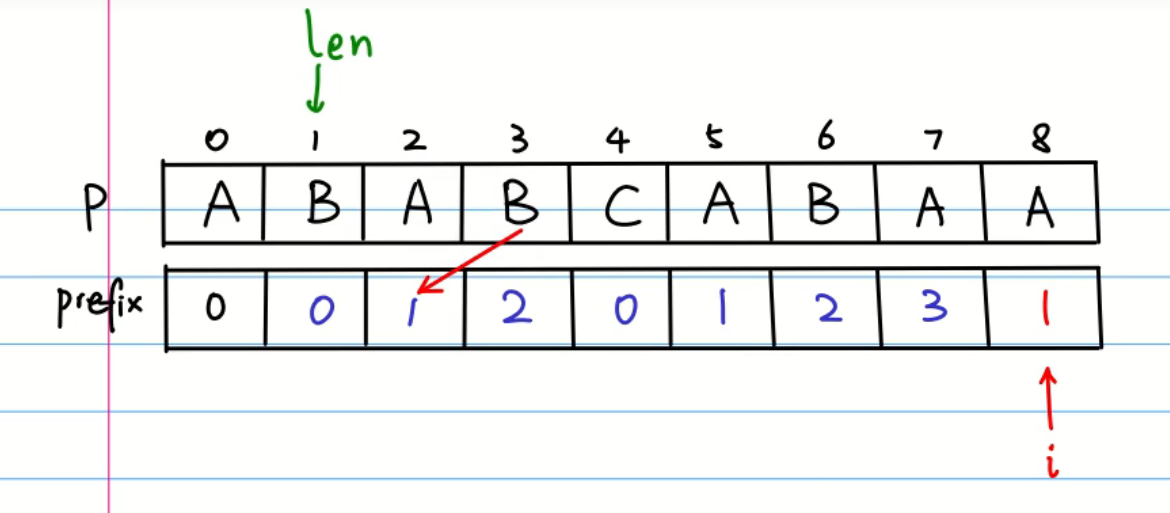 len
0 1 2 3 4 5 6 7 8
P A B A B C A B A A
prefix 0 0 1 2 0 1 2 3 1
i